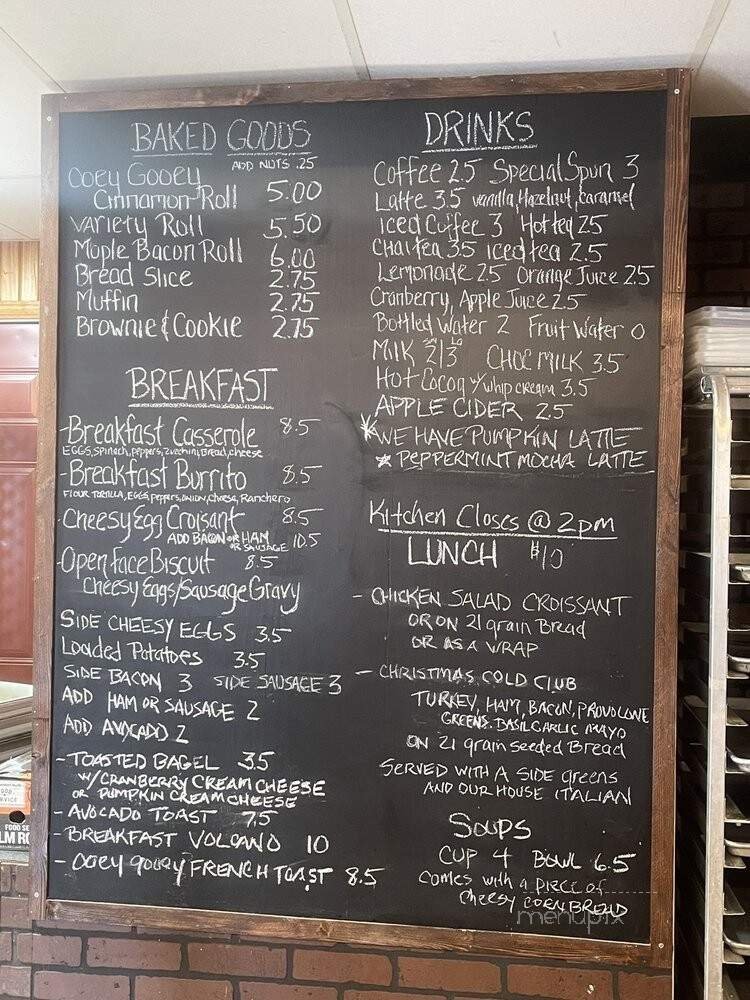 BAKED GOODS
ADD NUTS .25
Ooey Gooey
Cinnamon Roll 5.00
Variety Roll 5.50
Maple Bacon Roll 6.00
Bread Slice 2.75
Muffin 2.75
Brownie & Cookie 2.75
BREAKFAST
-Breakfast Casserole 8.5
EGGS, Spinach, peppers, Zucchini, Bread, cheese
-Breakfast Burrito 8.5
Flour Tortilla, EGGS, peppers, onion, cheese, Ranchero
-Cheesy Egg Croisant 8.5
ADD BACON OR HAM 10.5
OR SAUSAGE
-Open Face Biscuit 8.5
Cheesy Eggs/Sausage Gravy
SIDE CHEESY EGGS 3.5
Loaded Potatoes 3.5
SIDE BACON 3 SIDE SAUSAGE 3
ADD HAM OR SAUSAGE 2
ADD AVOCADO 2
- TOASTED BAGEL 3.5
W/CRANBERRY CREAM CHEESE
OR PUMPKIN CREAM CHEESE
- AVOCADO TOAST 7.5
- BREAKFAST VOLCANO 10
- OOEY GOOEY FRENCH TOAST 8.5
DRINKS
Coffee 2.5 Special Spun 3
Latte 3.5 vanilla, Hazelnut, Caramel
Iced Coffee 3 Hot tea 2.5
Chai tea 3.5 iced tea 2.5
Lemonade 2.5 Orange Juice 2.5
Cranberry, Apple Juice 2.5
Bottled Water 2 Fruit Water 0
Milk sm 2/ lg 3 CHOC MILK 3.5
Hot Cocoa w/ whip cream 3.5
APPLE CIDER 2.5
* WE HAVE PUMPKIN LATTE
* PEPPERMINT MOCHA LATTE
Kitchen Closes @ 2pm
LUNCH $10
- CHICKEN SALAD CROISSANT
OR ON 21 grain Bread
OR AS A WRAP
- CHRISTMAS COLD CLUB
TURKEY, HAM, BACON, PROVOLONE
GREENS, BASIL GARLIC MAYO
ON 21 grain seeded Bread
SERVED WITH A SIDE greens
AND OUR HOUSE ITALIAN
SOUPS
CUP 4 BOWL 6.5
comes with a piece of
cheesy CORNBREAD
menupix